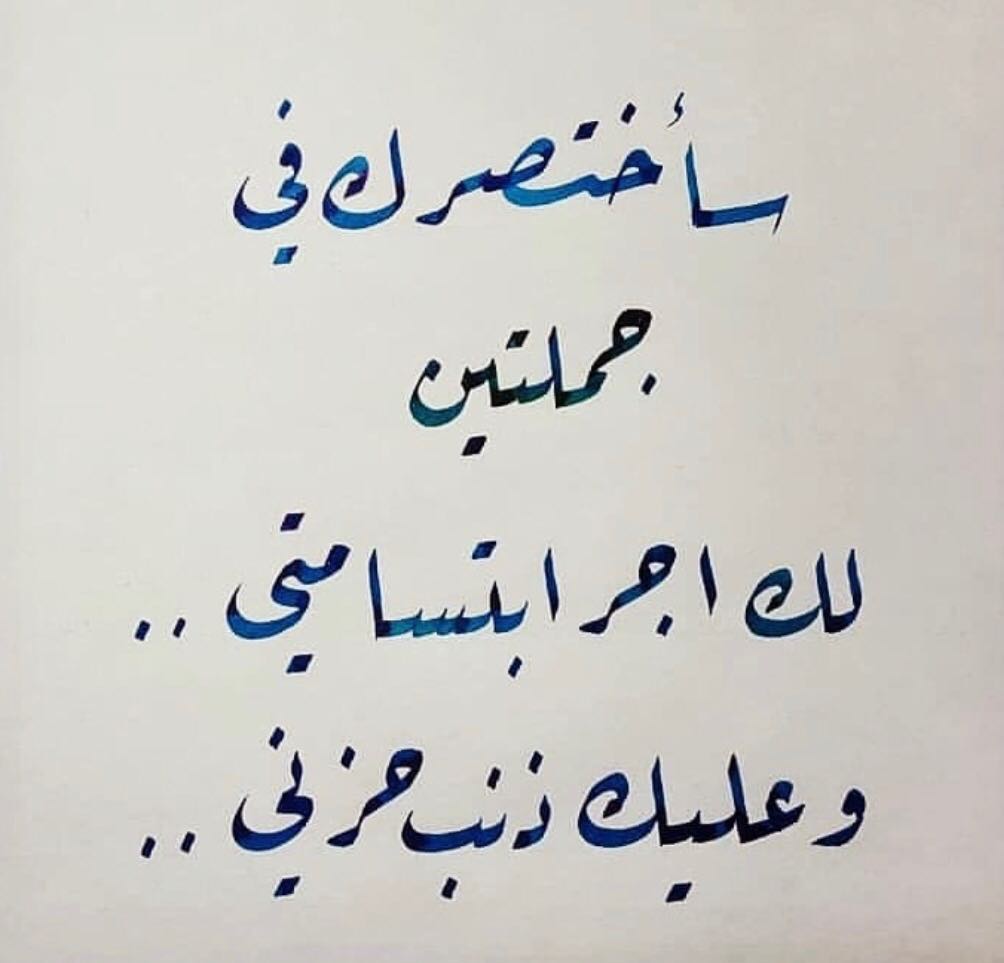 سأختصرك في
جملتين
لك اجر ابتسامتي ..
وعليك ذنب حزني ..